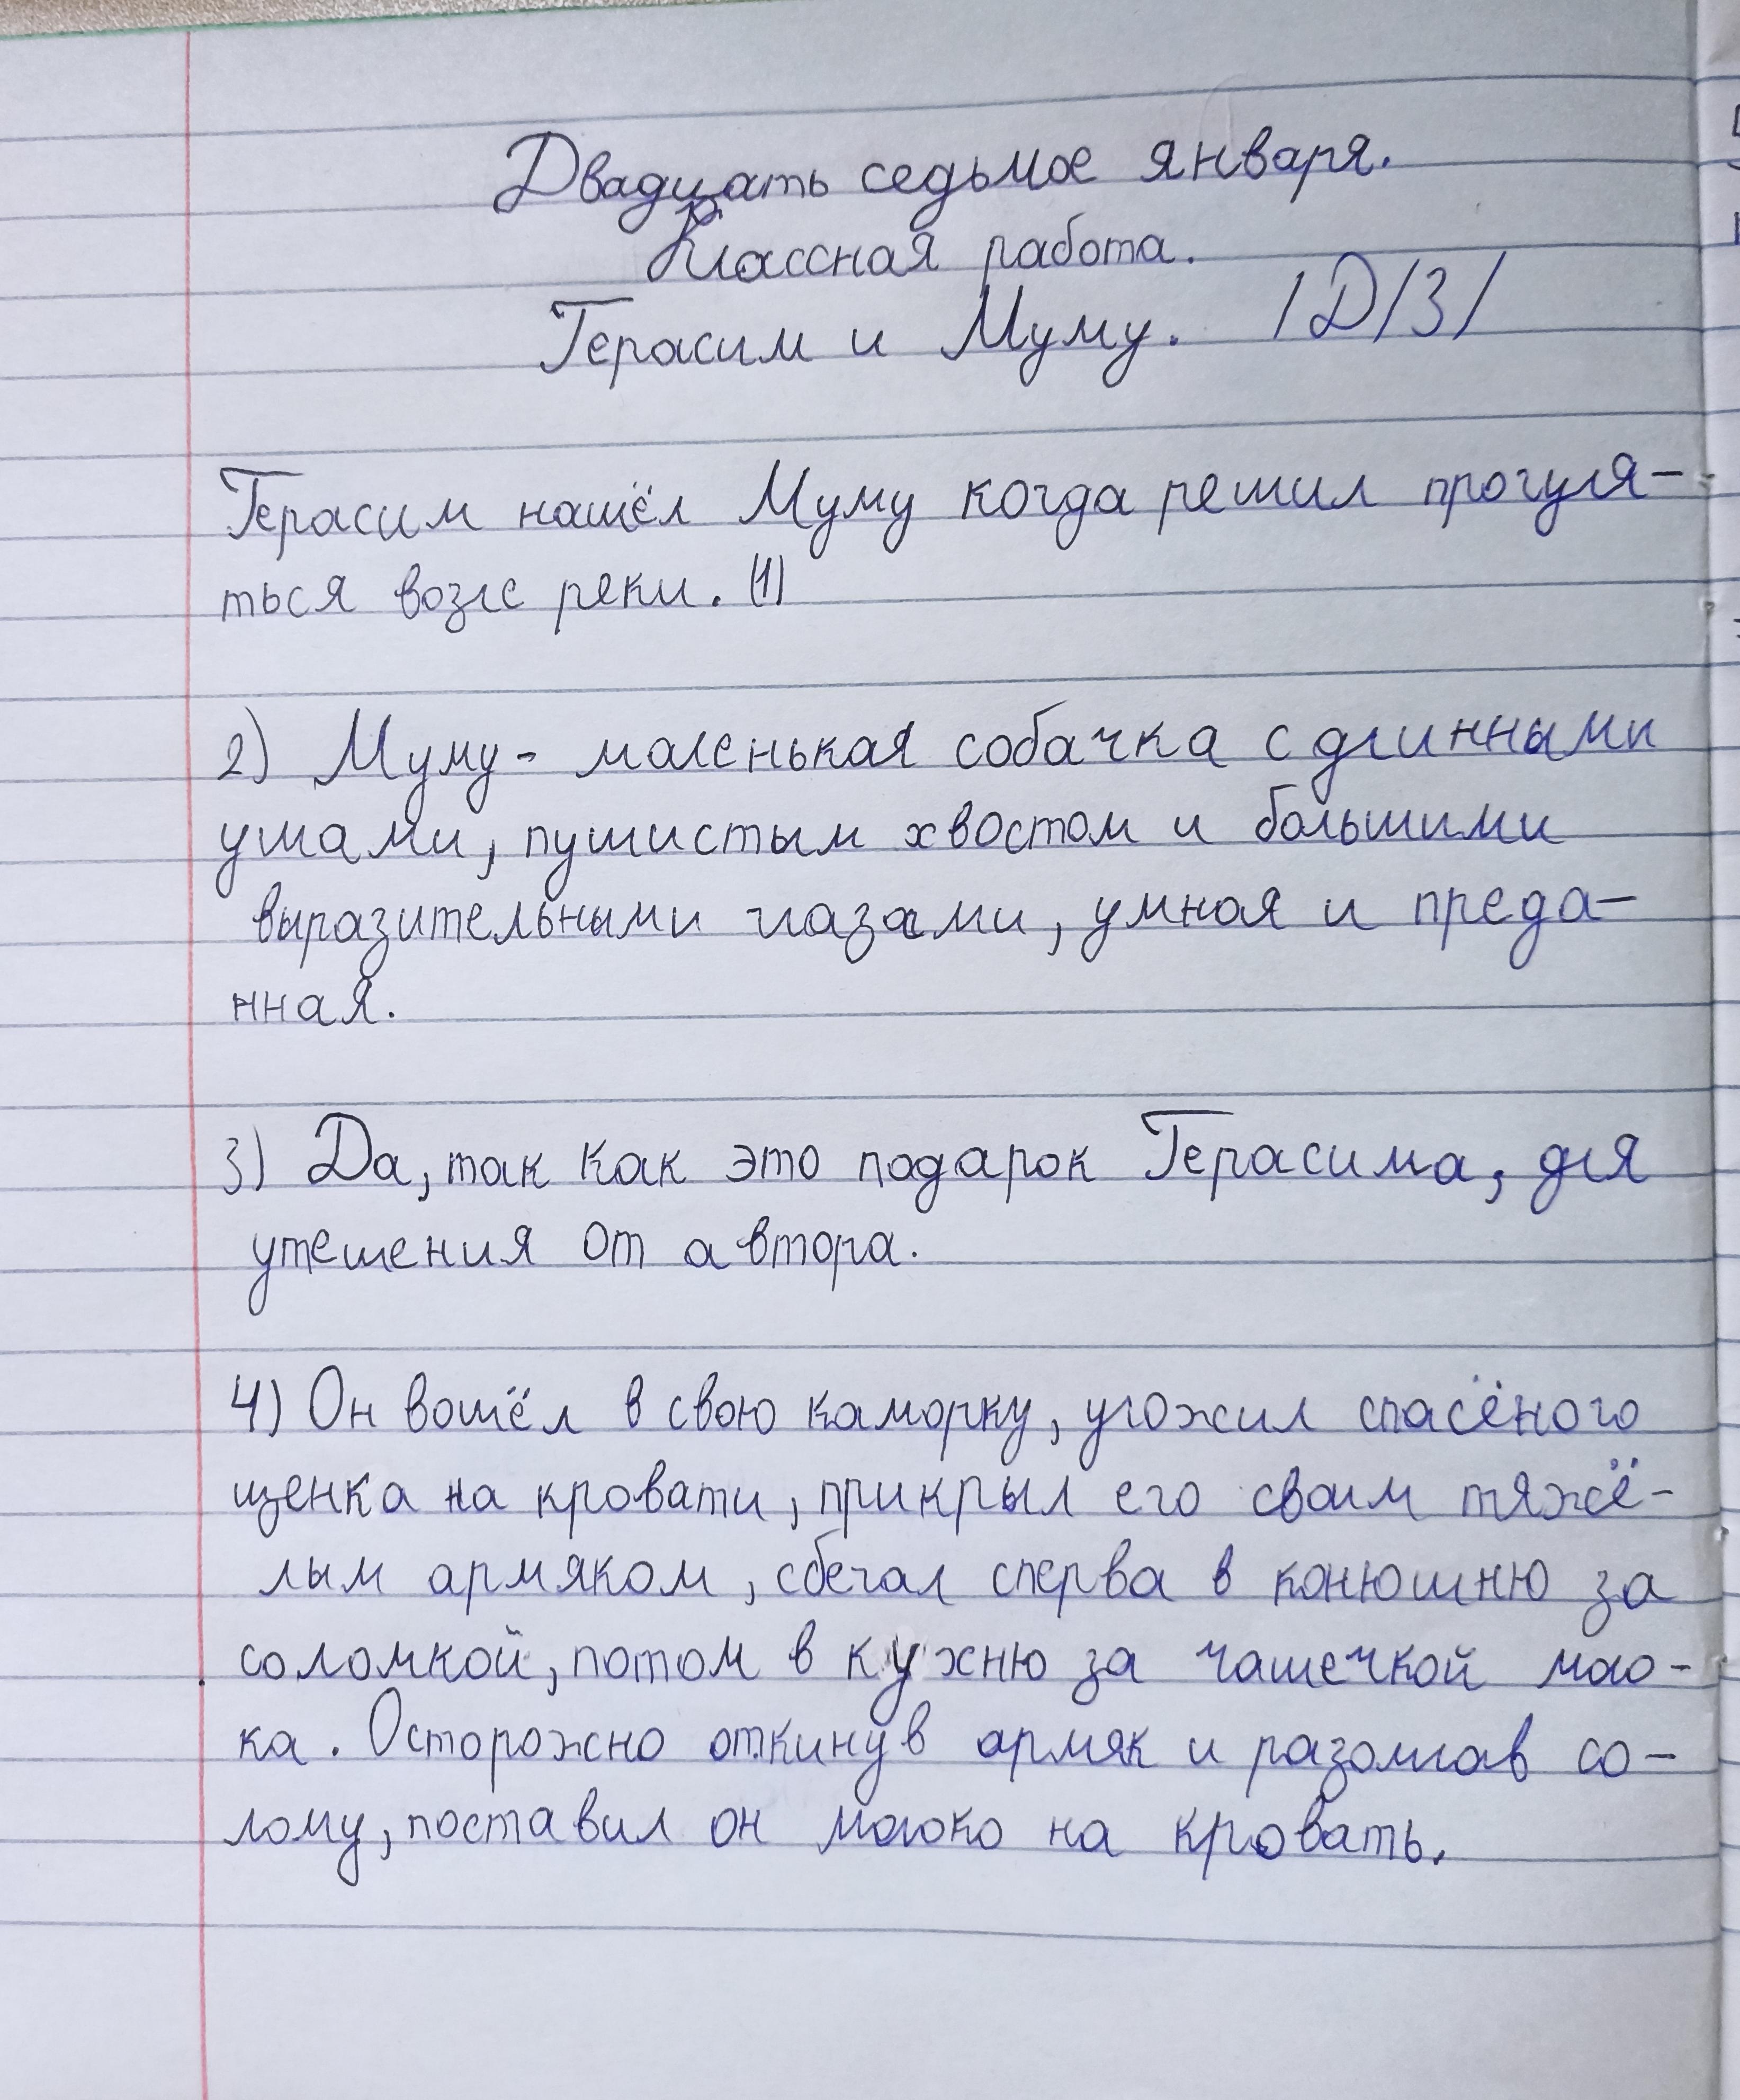 Двадцать седьмое января.
Классная работа.
Герасим и Муму. |Д/З/
Герасим нашёл Муму когда решил прогуля-
ться возле реки. (1)
2) Муму - маленькая собачка с длинными
ушами, пушистым хвостом и большими
выразительными глазами, умная и преда-
нная.
3) Да, так как это подарок Герасима, для
утешения от автора.
4) Он вошёл в свою каморку, уложил спасёного
щенка на кровати, прикрыл его своим тяжё-
лым армяком, сбегал сперва в конюшню за
соломкой, потом в кухню за чашечкой моло-
ка. Осторожно откинув армяк и разомлав со-
лому, поставил он молоко на кровать.